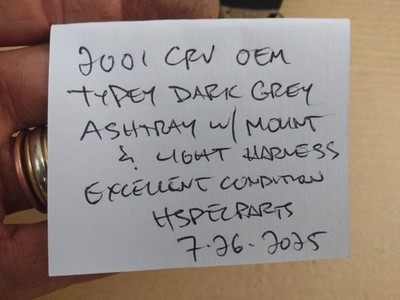 2001 CRV OEM
TYPEY DARK GREY
ASHTRAY W/ MOUNT
& LIGHT HARNESS
EXCELLENT CONDITION
HSPECPARTS
7.26.2025